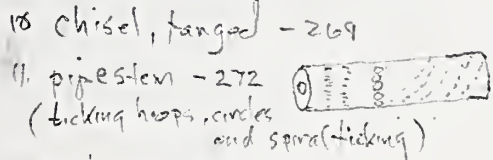 10 chisel, tanged - 269
11. pipestem - 272
(ticking hoops, circles
and spiral ticking)